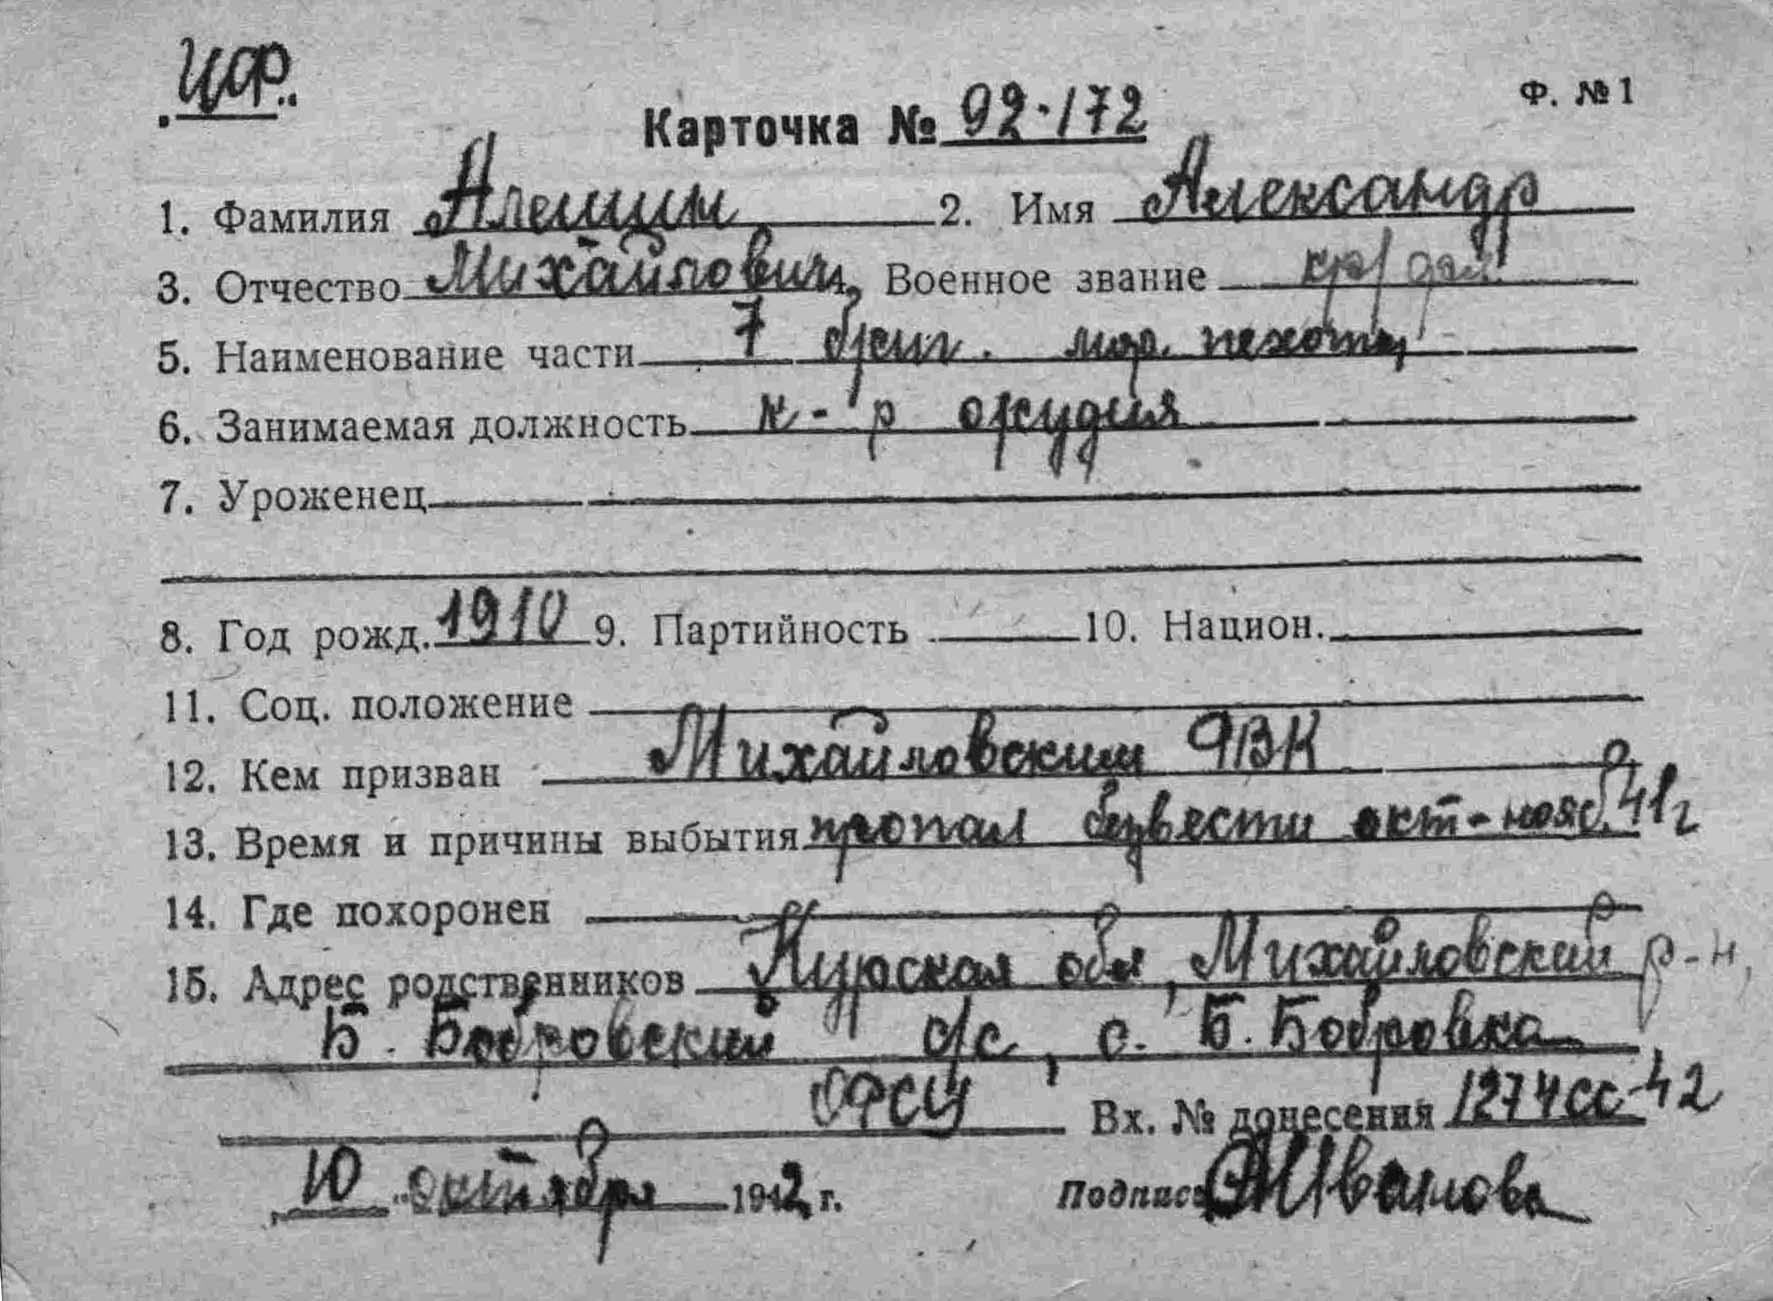 Ф. №1
Карточка № 92-172
1. Фамилия Алешин 2. Имя Александр
3. Отчество Михайлович, Военное звание кр/
5. Наименование части 7 бриг. мор. пехоты
6. Занимаемая должность к-р орудия
7. Уроженец
8. Год рожд. 1910 9. Партийность 10. Национ.
11. Соц. положение
12. Кем призван Михайловским РВК
13. Время и причины выбытия пропал безвести окт-нояб. 41г
14. Где похоронен
15. Адрес родственников Курская обл, Михайловский р-н,
Б. Бобровский с/с, с. Б. Бобровка
Вх. № донесения 1274сс-42
10 октября 1942 г. Подпись Иванова